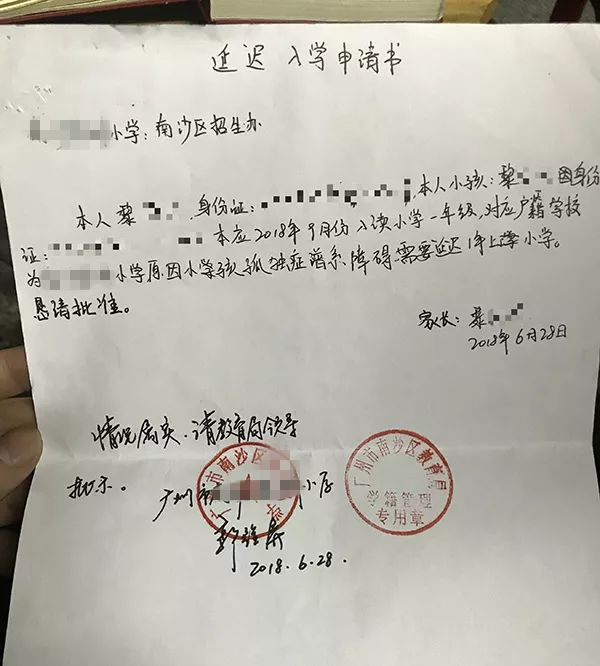 延迟 入学申请书
小学:南沙区招生办
本人黎 ,身份证: ,本人小孩:黎 因身份
证: 本应2018年9月份入读小学一年级,对应户籍学校
为 小学原因小孩孤独症谱系障碍需要延迟1年上小学。
恳请批准。
家长:黎
2018年6月28日
情况属实、请教育局领导
批示。
广州市 小学
广州市南沙区
广州市南沙区教育局
学籍管理
专用章
2018.6.28.